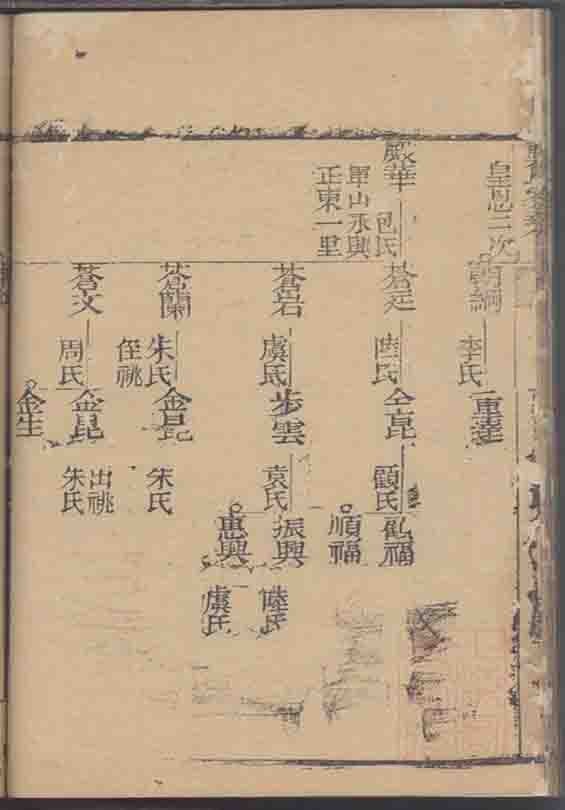 皇恩二次
朗綱
李氏
重達
嚴華
包氏
單山永興
正東一里
蒼廷
陸氏
全昆
顧氏
順福
蒼岩
虞氏
步雲
袁氏
振興
陸氏
惠興
虞氏
蒼蘭
朱氏
侄祧
金昆
朱氏
蒼文
周氏
金昆
出祧
朱氏
金生